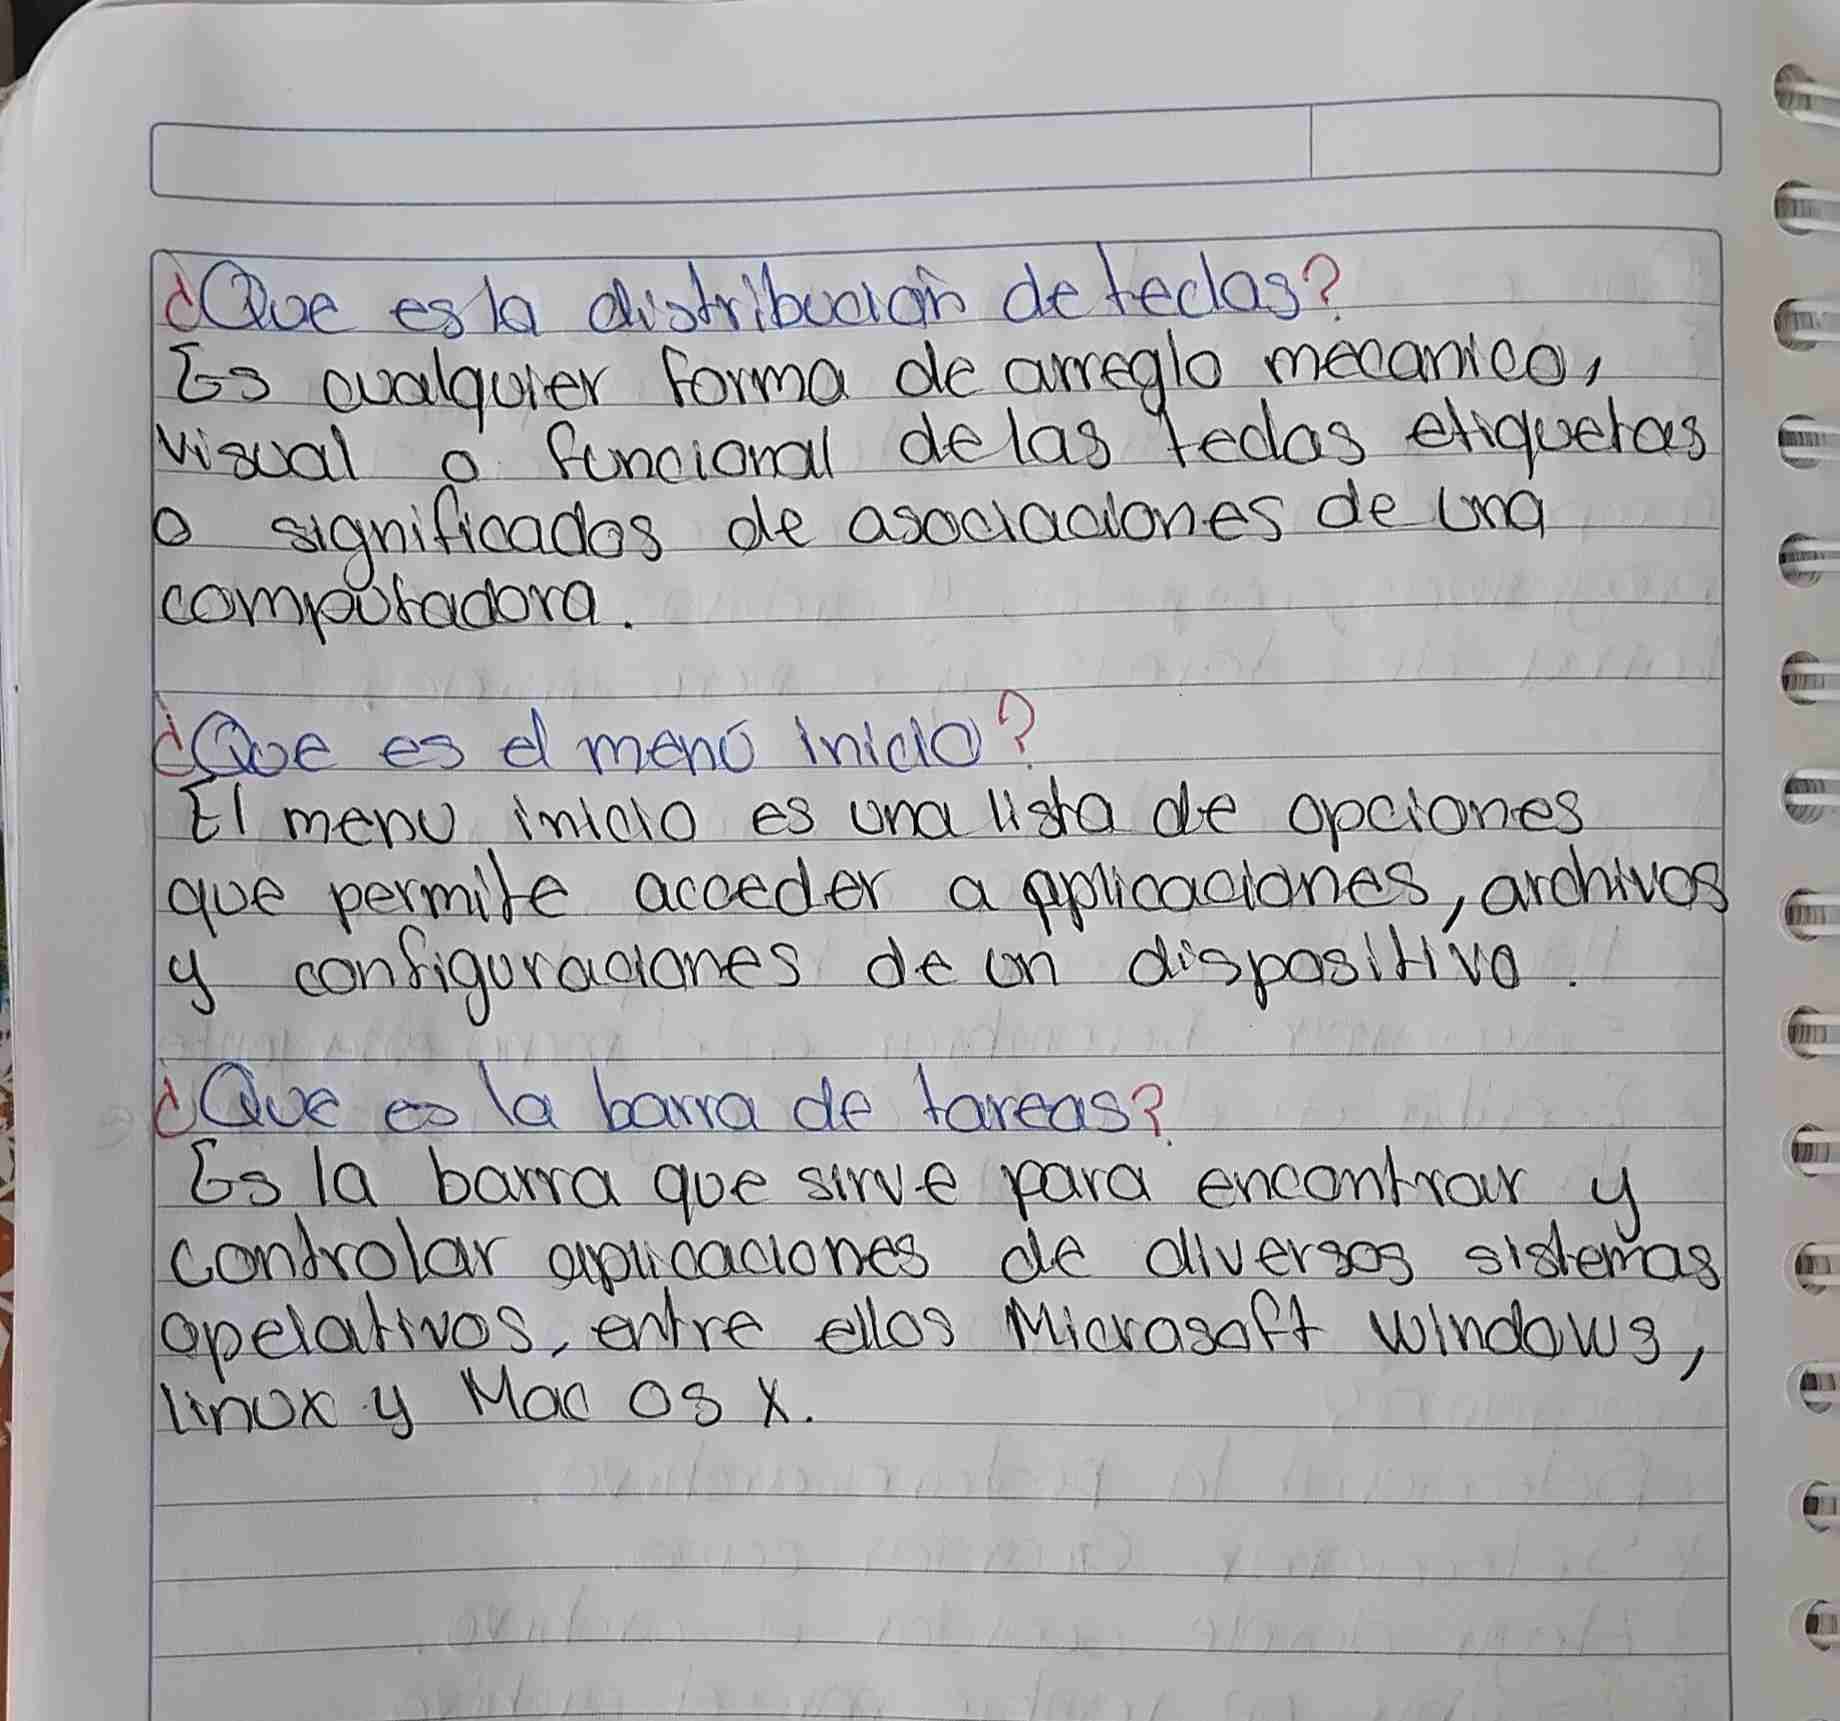 ¿Que es la distribución de teclas?
Es cualquier forma de arreglo mecanico,
visual o funcional de las teclas etiquetas
o significados de asociaciones de una
computadora.
¿Que es el menú inicio?
El menu inicio es una lista de opciones
que permite acceder a aplicaciones, archivos
y configuraciones de un dispositivo.
¿Que es la barra de tareas?
Es la barra que sirve para encontrar y
controlar aplicaciones de diversos sistemas
opelativos, entre ellos Microsoft windows,
linux y Mac OS X.